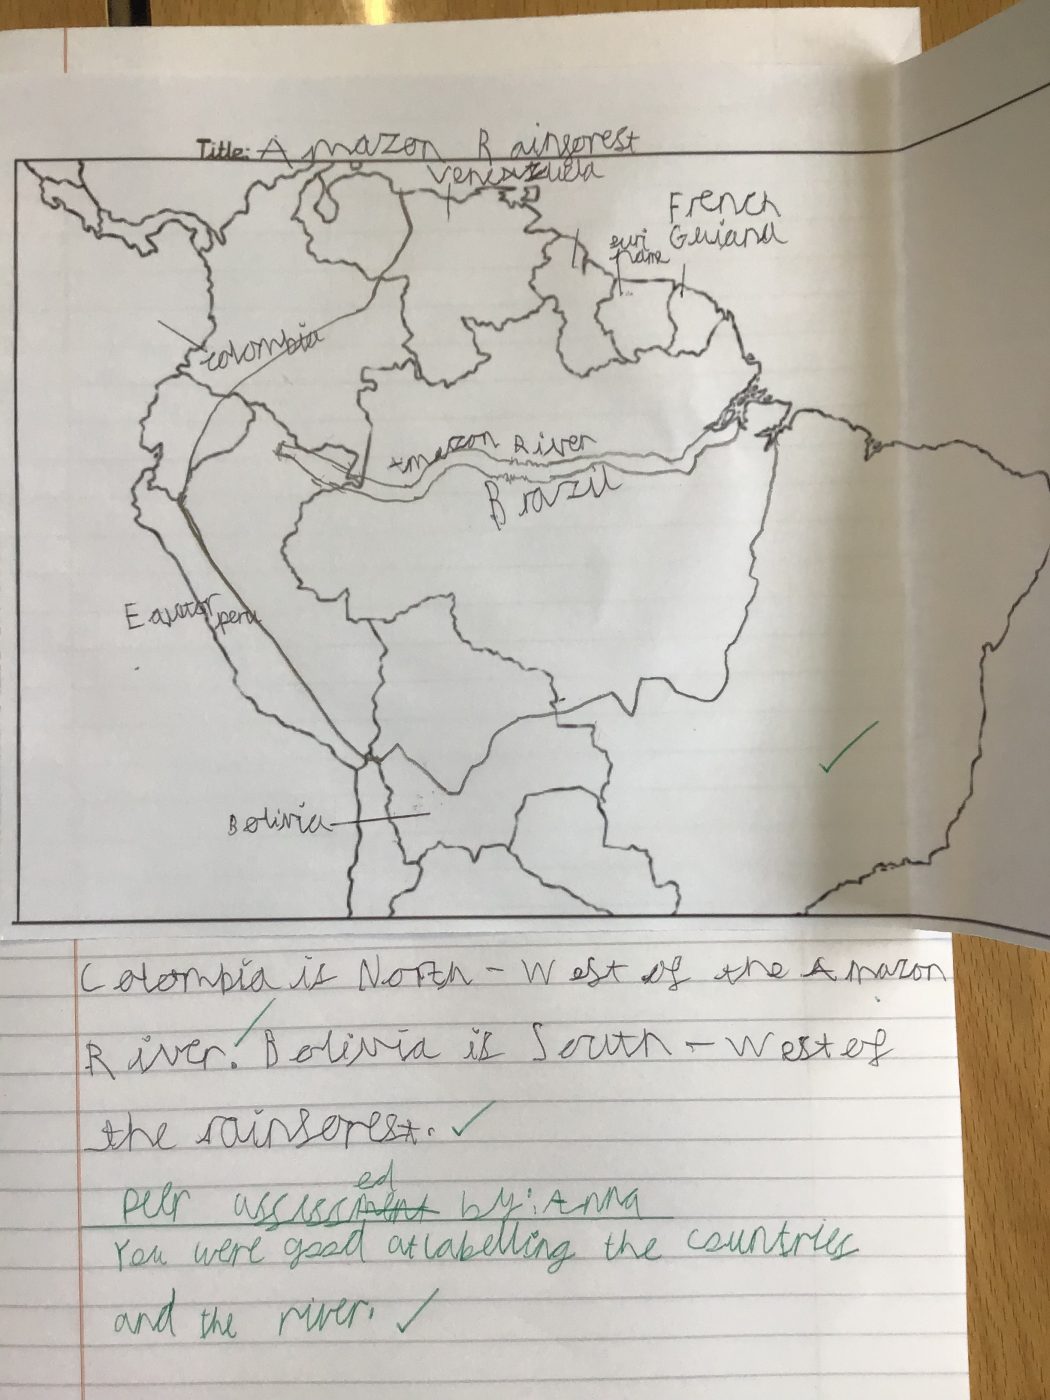 Title: Amazon Rainforest
Venezuela
French
Guiana
suri
name
Colombia
Amazon River
Brazil
Equator
peru
Bolivia
Colombia is North-West of the Amazon
River. Bolivia is South-West of
the rainforest.
peer assessed by: Anna
You were good at labelling the countries
and the river.